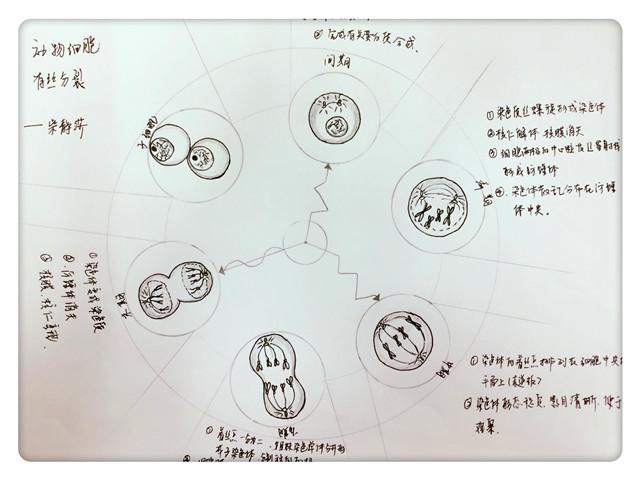 动物细胞
有丝分裂
——宋静莎
②完成有关蛋白质合成.
间期
子细胞
①染色质丝螺旋形成染色体
②核仁解体 核膜消失
③细胞两极的中心粒发出星射线
形成纺锤体
④.染色体散乱分布在纺锤
体中央。
前期
①染色体的着丝点排列在细胞中央
平面上(赤道板)
②染色体形态稳定,数目清晰,便于
观察.
中期
后期
①着丝点一分为二,姐妹染色单体分开形
成子染色体
末期
①染色体变成染色质
②纺锤体消失
③核膜.核仁重现.